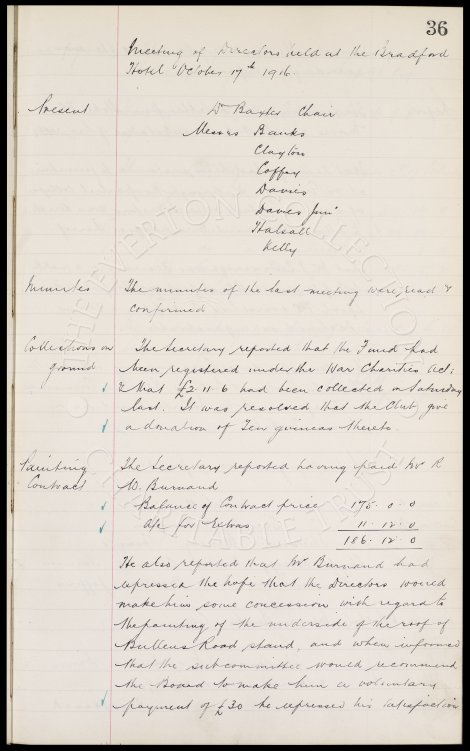 36
Meeting of Directors held at the Bradford
Hotel October 17th 1916.
Present Dr Baxter Chair
Messrs Banks
Clayton
Coffey
Davies
Davies Junr
Halsall
Kelly
Minutes The minutes of the last meeting were read &
confirmed
Collections on The Secretary reported that the Fund had
ground been registered under the War Charities Act:
& that £2.11.6 had been collected on Saturday
last. It was resolved that the Club give
a donation of Ten guineas thereto.
Painting The Secretary reported having paid Mr R
Contract W. Burnand
Balance of Contract price 175. 0. 0
a/c for Extras 11. 12. 0
186. 12. 0
He also reported that Mr Burnand had
expressed the hope that the Directors would
make him some concession with regard to
the painting of the underside of the roof of
Bullens Road stand, and when informed
that the sub committee would recommend
the Board to make him a voluntary
payment of £30 he expressed his satisfaction
THE EVERTON COLLECTION CHARITABLE TRUST